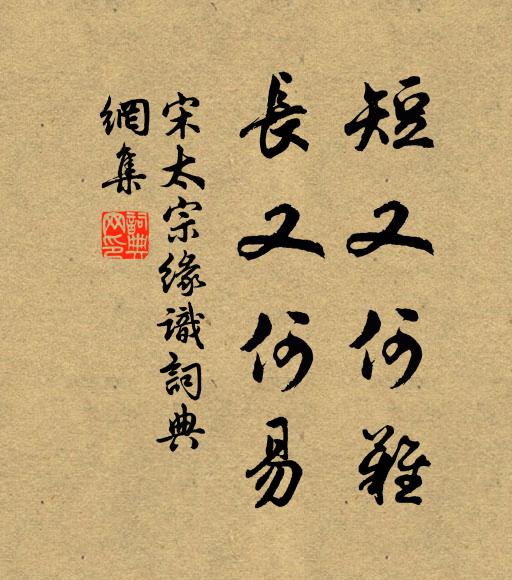 短又何難
長又何易
宋太宗緣識詞典
網集
詞典
網印